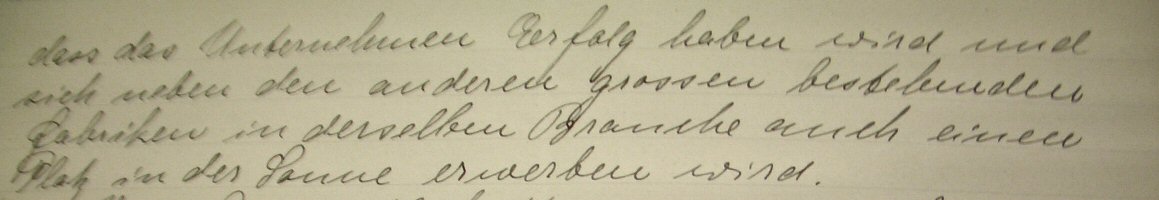 dass das Unternehmen Erfolg haben wird und
sich neben den anderen grossen bestehenden
Fabriken in derselben Branche auch einen
Platz in der Sonne erwerben wird.